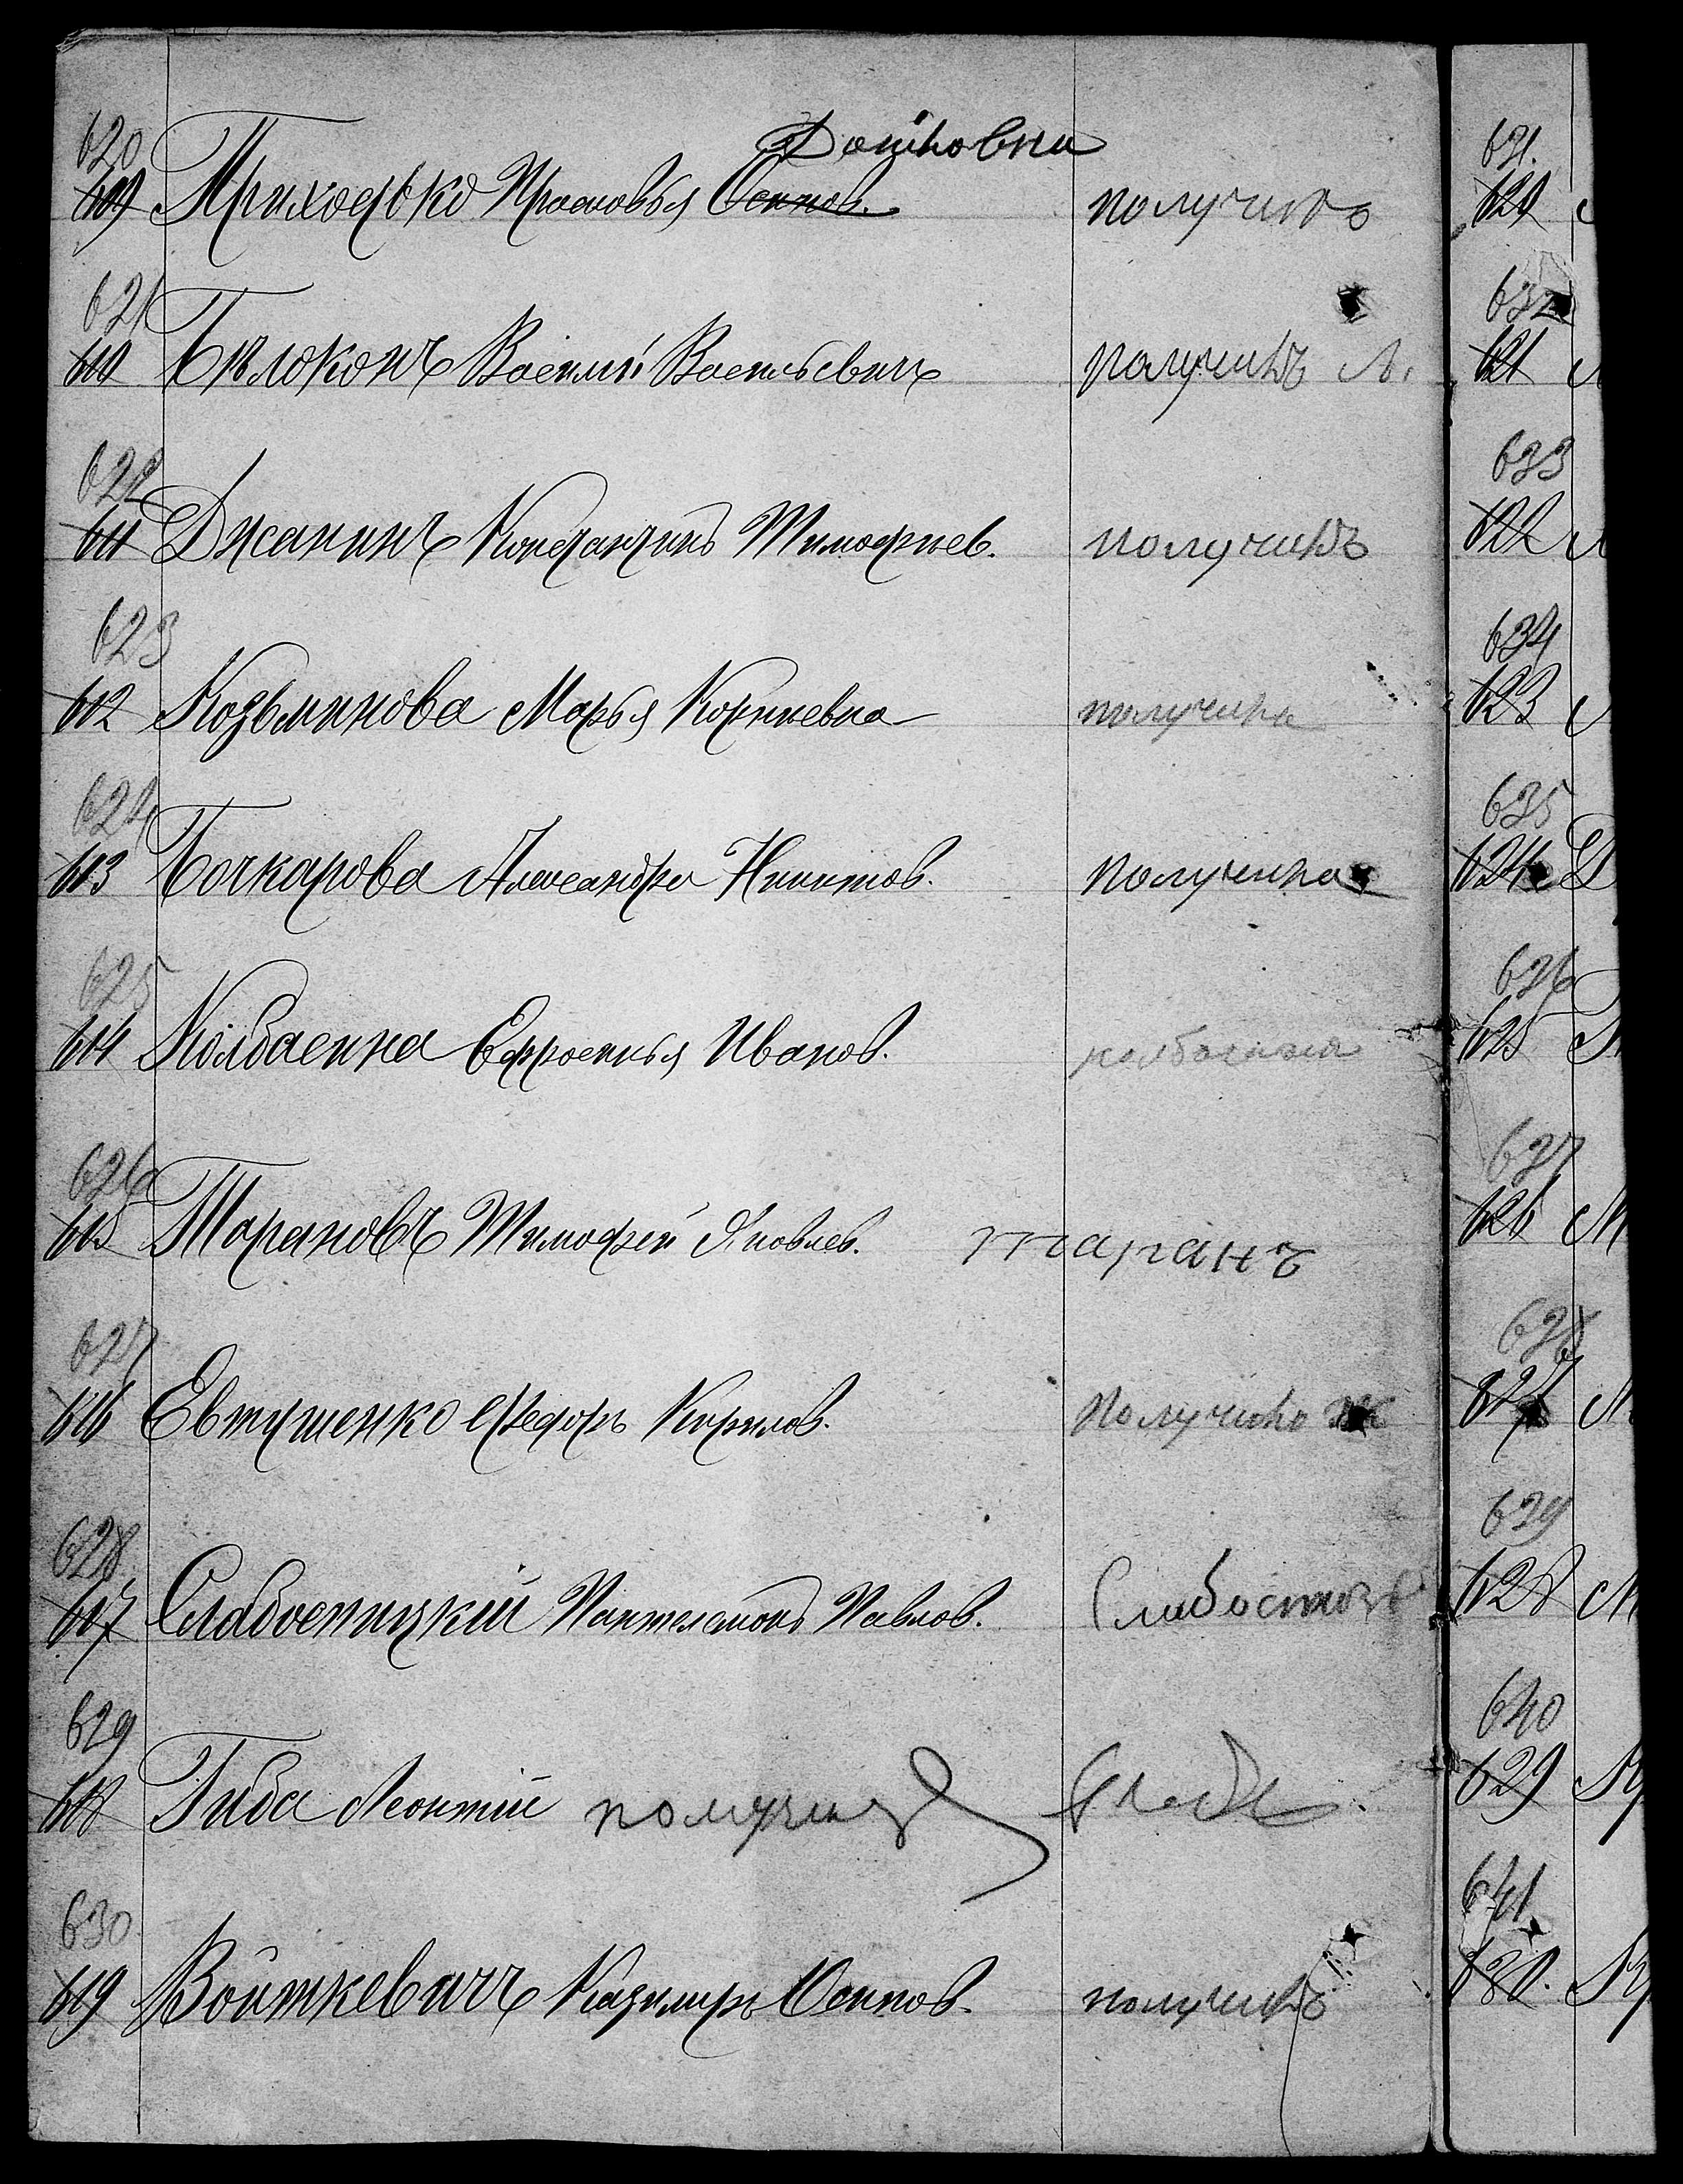 620
609 Приходько Прасковья Осипов. Фотіовна получилъ
621
610 Бѣлоконъ Василій Васильевичъ получилъ
622
611 Джанинъ Константинъ Тимофѣев. получилъ
623
612 Козьминова Марья Корнѣевна получила
624
613 Бочкарова Александра Никитов. получила
625
614 Колбасина Ефросинья Иванов. колбасина
626
615 Тарановъ Тимофей Яковлев. таранъ
627
616 Евтушенко Федоръ Кирилов. получило
628
617 Слабоспицкій Пантелемонъ Павлов.
629
618 Гиба Леонтій
630
619 Войткевичъ Казимиръ Осипов. получилъ
631.
620
632
621
633
622
634
623
635
624
636
625
637
626
638
627
639
628
640
629
641
630.